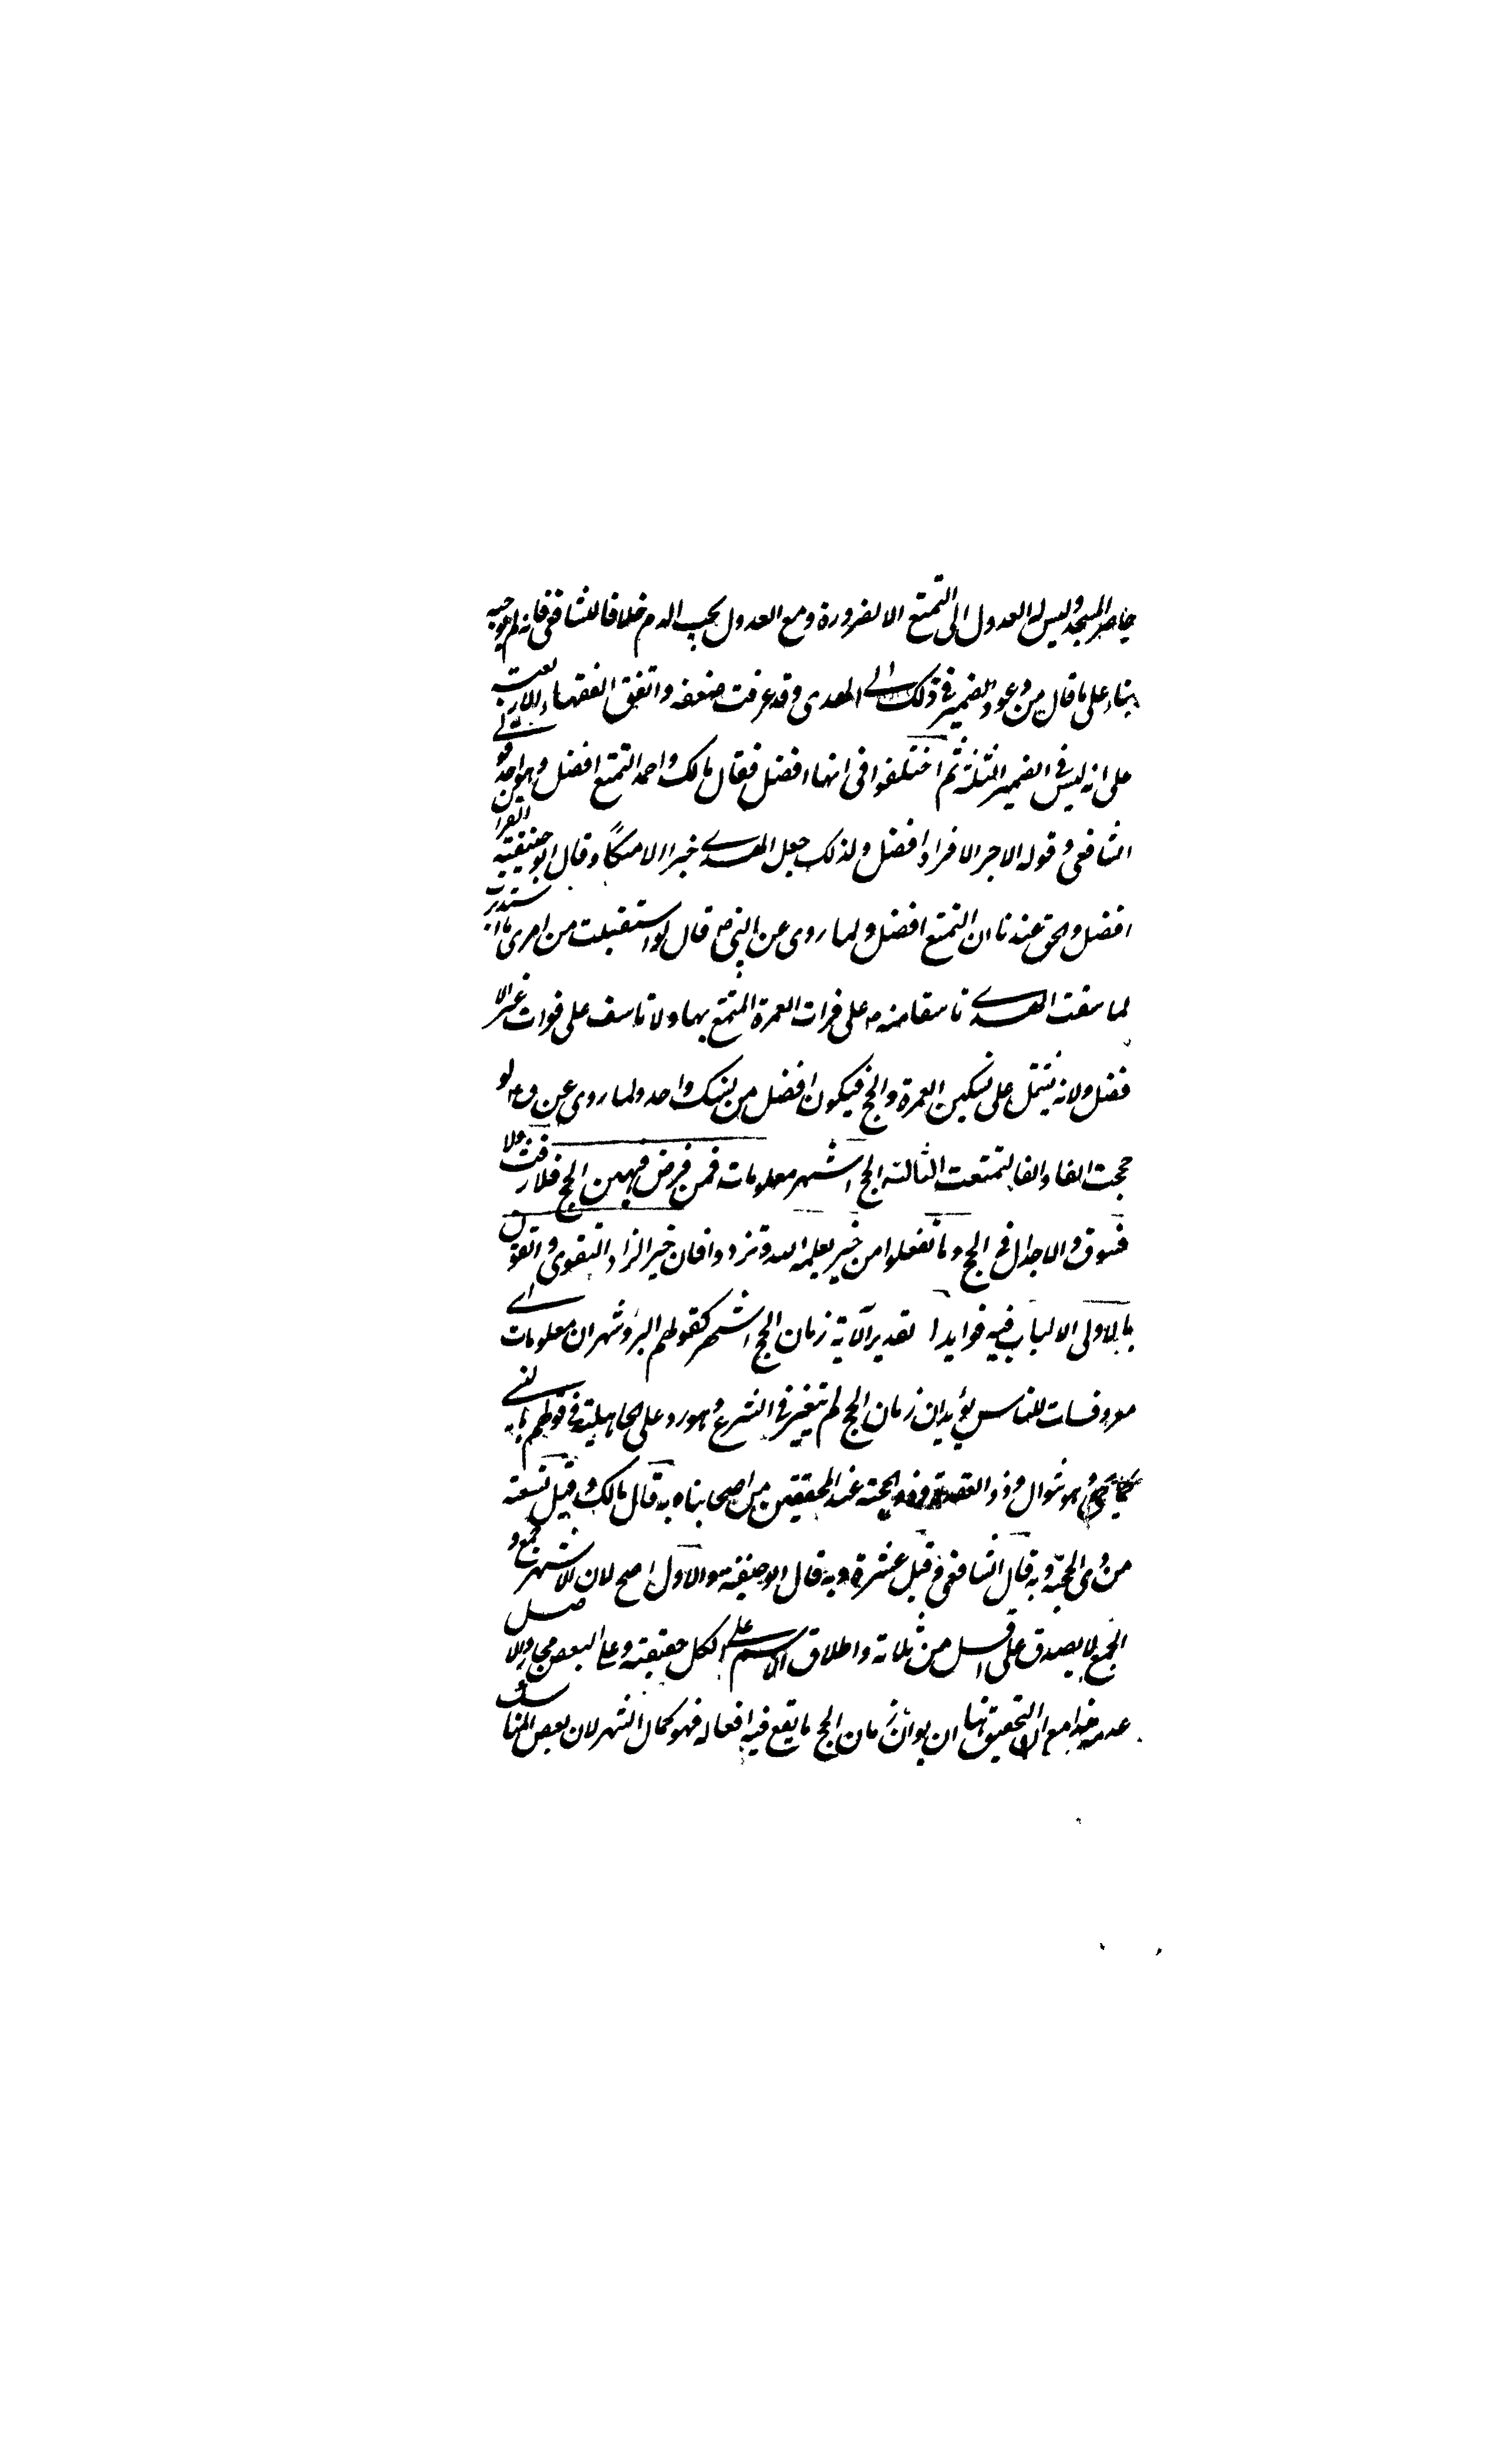 حاضر المسجد وليس له العدول الى التمتع الا لضرورة ومع العدول يجب الدم خلافا للشافعى فانه لم يوجبه
بناء على ما قال من وعود الضمير فى ذلك الى الهدى وقد عرفت ضعفه واتفق الفقهاء الاربعة
على انه ليس فى الضمير الثلثة ثم اختلفوا فى انها افضل فقال مالك واحمد التمتع افضل وهو احد قولى
الشافعى وقوله الاخر الافراد افضل ولذلك جعل الهدى خبرا لا منسكا وقال ابو حنيفة القران
افضل والحق عندنا ان التمتع افضل ولما روى عن النبى ص قال لو استقبلت من امرى ما استدبرت
لما سقت الهدى تاسفا منه ص على فوات العمرة المتمتع بها ولا تاسف على فوات غير الا
فضل ولانه يشتمل على نسكين العمرة والحج فيكون افضل من نسك واحد ولما روى عن لو
حججت الفا والفا لتمتعت الثالثة الحج اشهر معلومات فمن فرض فيهن الحج فلا رفث ولا
فسوق ولا جدال فى الحج وما تفعلوا من خير يعلمه الله وتزودوا فان خير الزاد التقوى واتقون
يا اولى الالباب فيه فوايد ا تقدير الآية زمان الحج اشهر كقولهم البرد شهران معلومات اى
معروفات للناس يؤيد ان زمان الحج لم يتغير فى الشرع وهو رد على الجاهلية فى قولهم بالنسى
وهو شوال وذو القعدة وذو الحجة عند المحققين من اصحابنا وبه قال مالك وقيل تسعة
من ذى الحجة وبه قال الشافعى وقيل عشرة وبه قال ابو حنيفة والاول اصح لان الاشهر جمع و
الجمع لا يصدق على اقل من ثلاثة واطلاق الاسم على الكل حقيقة وعلى البعض مجاز والاصل
عدمه هذا مع ان التحقيق هنا ان يقال زمان الحج ما يقع فيه افعاله فهو كمال الشهر لان بعض المناسك